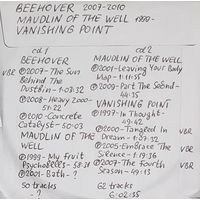 BEEHOVER 2007-2010
MAUDLIN OF THE WELL 1999-
VANISHING POINT
cd 1
BEEHOVER
VBR ©2007-The Sun
Behind The
Dustbin-1:07:32
©2008-Heavy Zooo-
51:22
©2010-Concrete
Catalyst-50:03
MAUDLIN OF THE
WELL
©1999-My Fruit
Psychobells-58:21
©2001-Bath-?
50 tracks
?
cd 2
MAUDLIN OF THE WELL
©2001-Leaving Your Body
Map-1:11:55
©2009-Part The Second-
44:35
VANISHING POINT
©1997-In Thought-
49:42
©2000-Tangled In VBR
Dream-1:07:12
©2005-Embrace The VBR
Silence-1:19:36
©2007-The Fourth VBR
Season-49:13
62 tracks
6:02:55